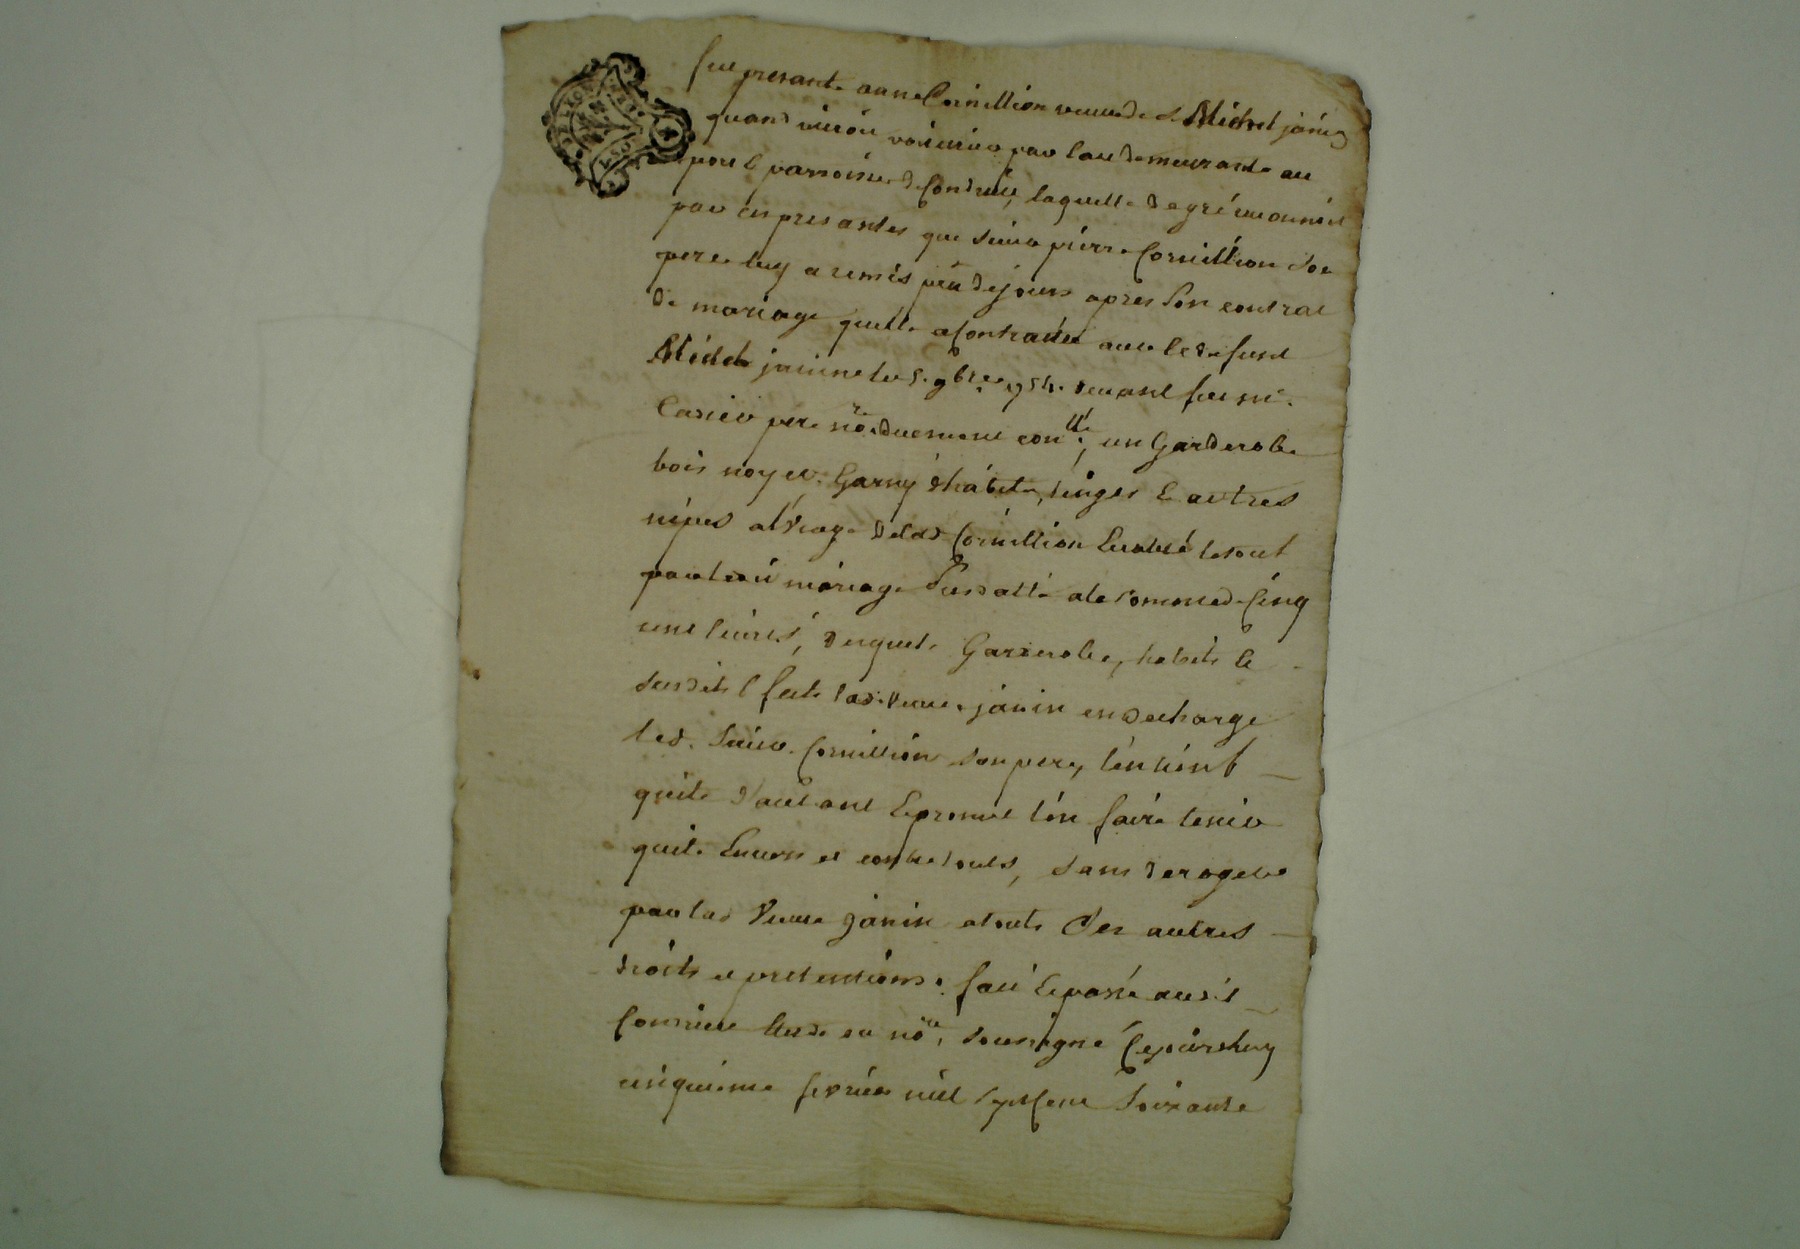 fut presante anne Cornillion veuve de S. Michel janin
quand vivoit voiturier par eau demeurante au
port paroisse de Condrieu, laquelle de gré
par ces presantes que sieur pierre Cornillion son
pere luy a remis peu de jours apres son contrat
de mariage quelle a contracté avec le defunt
Michel janin le 5. 9bre 1754. devant feu me.
pere nore duement conllé; un Garderobe
bois noyer Garny d'habits, linges & autres
nipes a l'usage de lad Cornillion Evalué le tout
mariage susdatté a la somme de Cinq
cent livres, duquel Garderobe, habits &
susdits Effets lad. veuve janin en decharge
led. sieur Cornillion son pere, l'en tient
quite d'autant & promet l'en faire tenir
quite Envers et contre touts, sans deroger
par lad veuve janin a touts Ses autres
droits et pretentions. fait & passé aud.
Condrieu Etude du nore, soussigné Cejourdhuy
cinquieme fevrier mil sept Cent Soixante